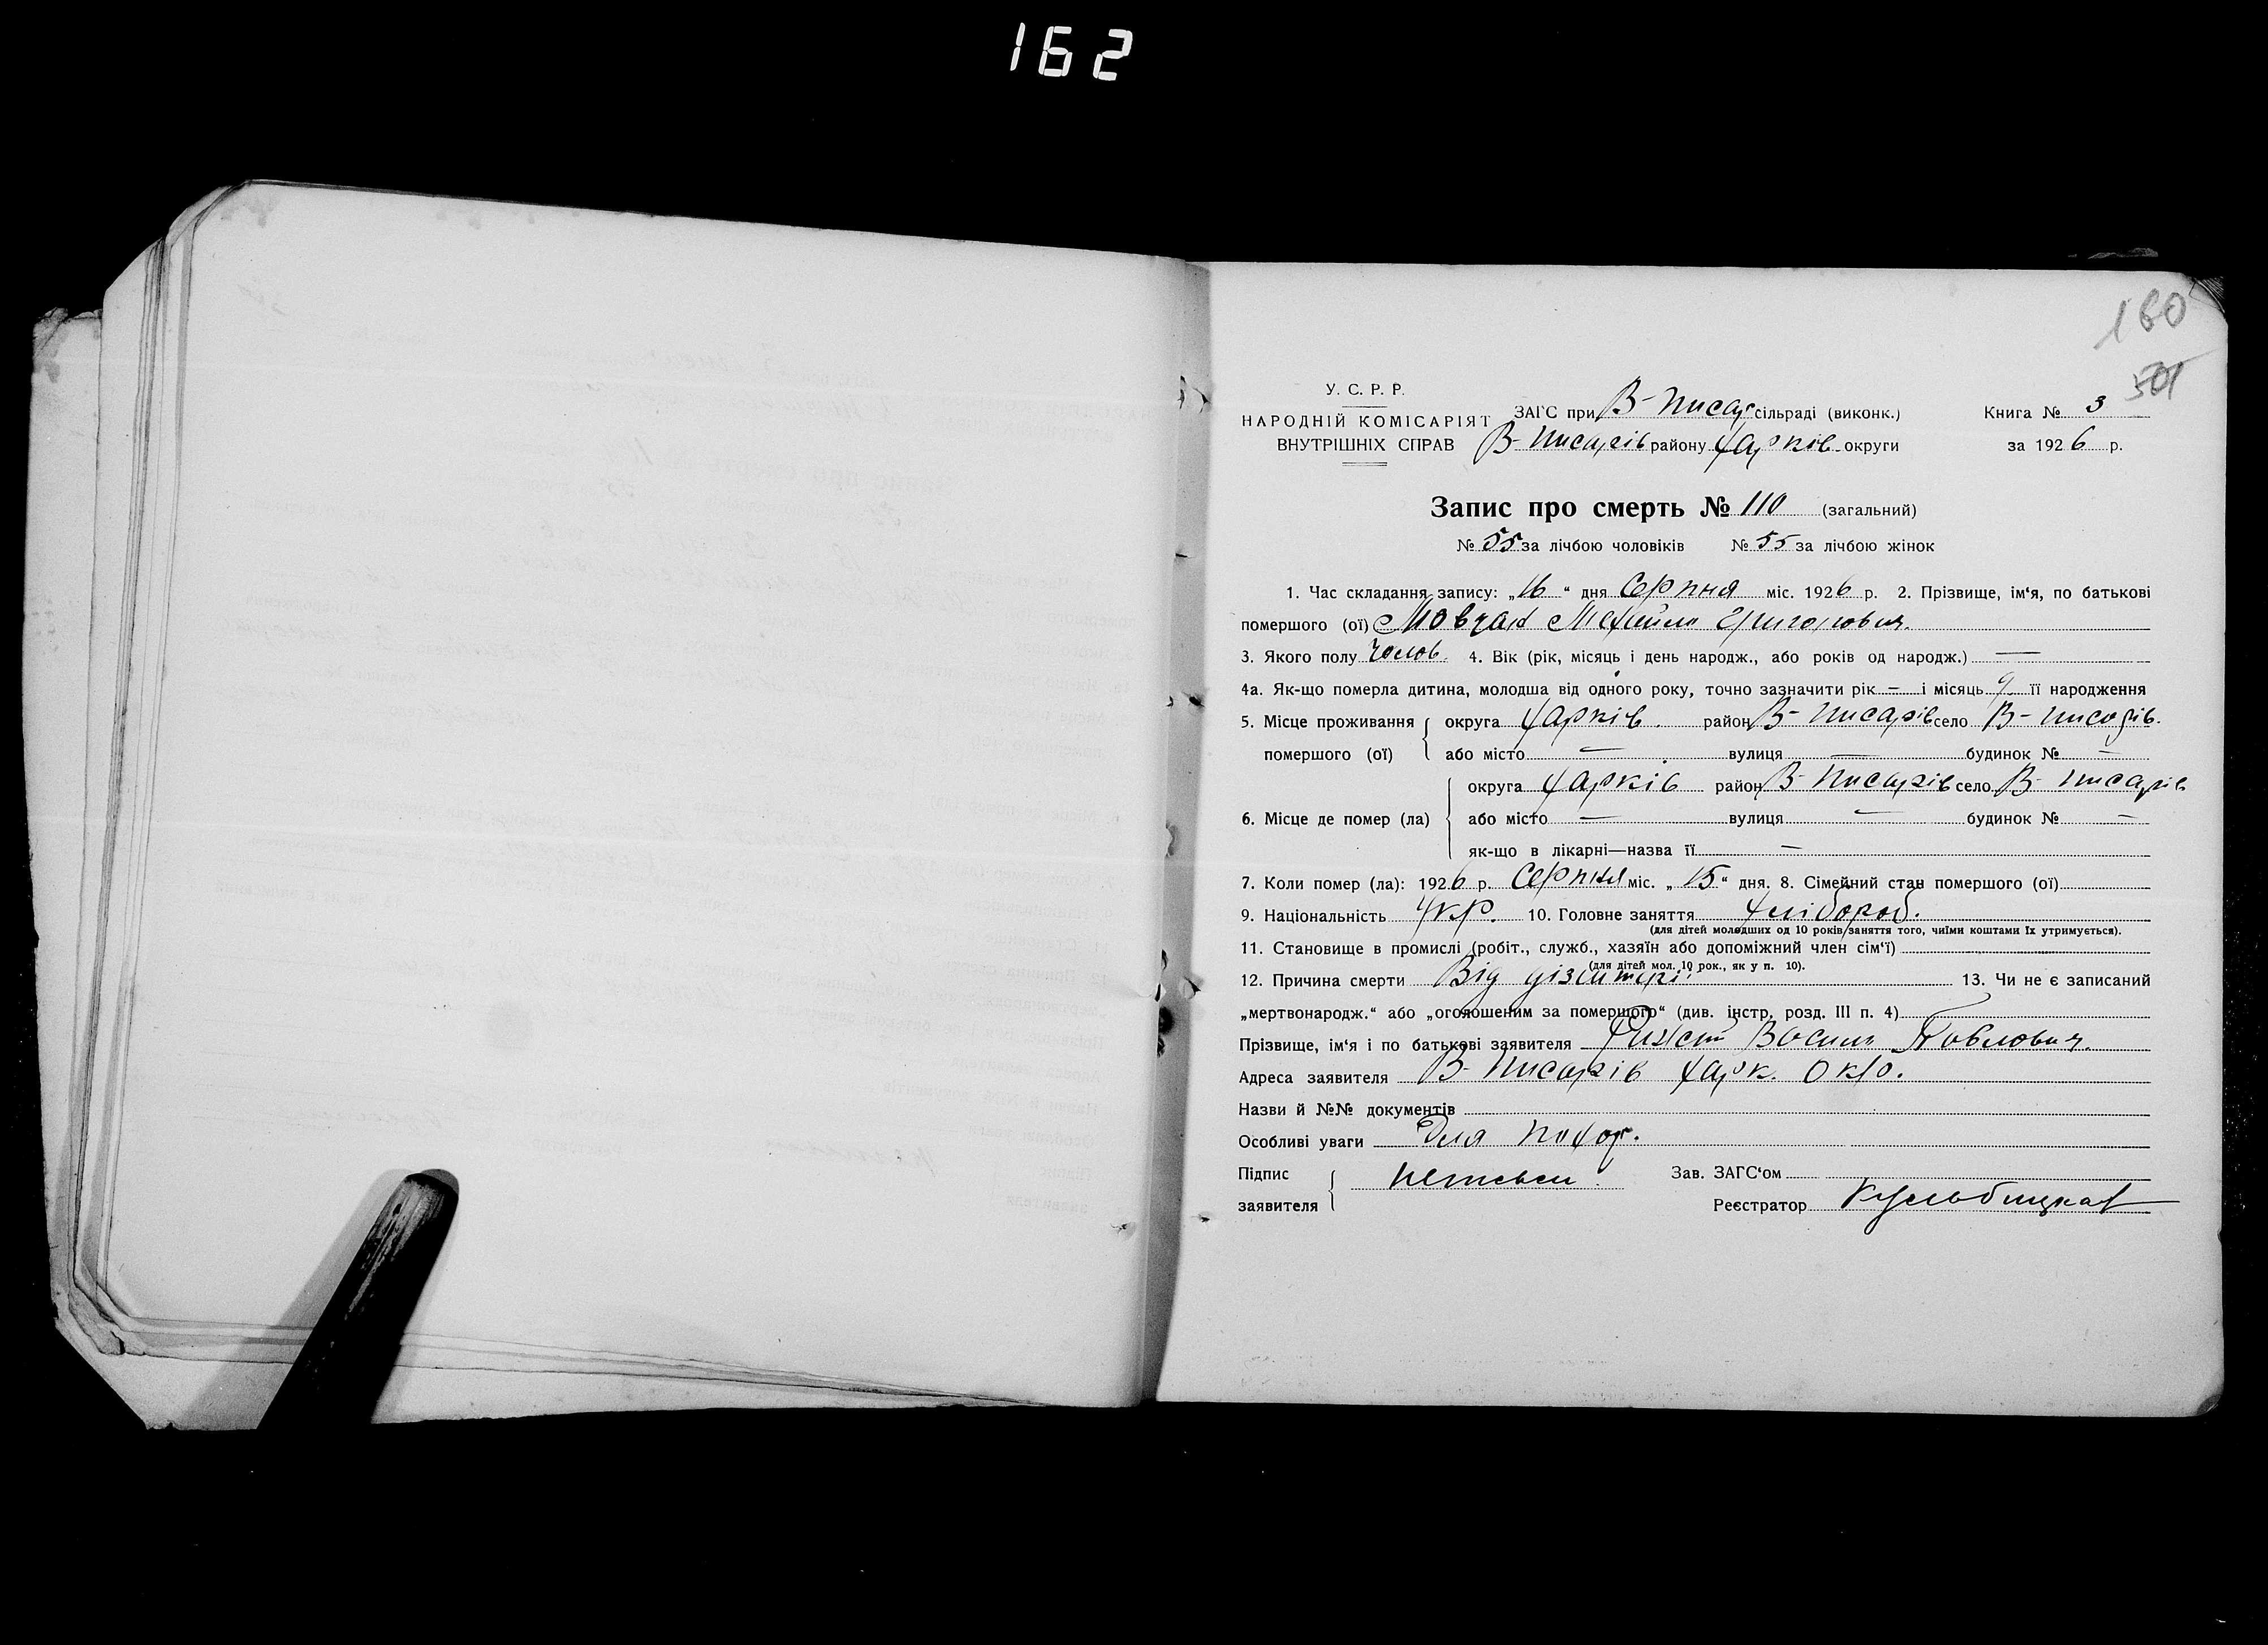 162
160
501
У. С. Р. Р.
НАРОДНІЙ КОМІСАРІЯТ
ВНУТРІШНІХ СПРАВ
ЗАГС при В-Писар сільраді (виконк.) Книга № 3
В-Писарів району Харків округи за 1926 р.
Запис про смерть № 110 (загальний)
№ 55 за лічбою чоловіків № 55 за лічбою жінок
1. Час складання запису: „16“ дня Серпня міс. 1926 р. 2. Прізвище, ім‘я, по батькові
помершого (ої) Мовчан Михайло Григорович.
3. Якого полу Чолов. 4. Вік (рік, місяць і день народж., або років од народж.) —
4а. Як-що померла дитина, молодша від одного року, точно зазначити рік – і місяць 9 її народження
5. Місце проживання округа Харків. район В-Писарів село В-Писарів.
помершого (ої) або місто — вулиця — будинок № —
округа Харків район В-Писарів село В-Писарів
6. Місце де помер (ла) або місто — вулиця — будинок № —
як-що в лікарні—назва її —
7. Коли помер (ла): 1926 р. Серпня міс. „15“ дня. 8. Сімейний стан помершого (ої)
9. Національність Укр. 10. Головне заняття Хлібороб.
(для дітей молодших од 10 років заняття того, чиїми коштами їх утримується).
11. Становище в промислі (робіт., служб., хазяїн або допоміжний член сім‘ї)
(для дітей мол. 10 рок., як у п. 10).
12. Причина смерти Від дізінтері. 13. Чи не є записаний
„мертвонародж.“ або „оголошеним за помершого“ (див. інстр. розд. III п. 4)
Прізвище, ім‘я і по батькові заявителя Василь Павлович.
Адреса заявителя В-Писарів Харк. Окр.
Назви й №№ документів
Особливі уваги Для похор.
Підпис
заявителя
Зав. ЗАГС‘ом
Реєстратор